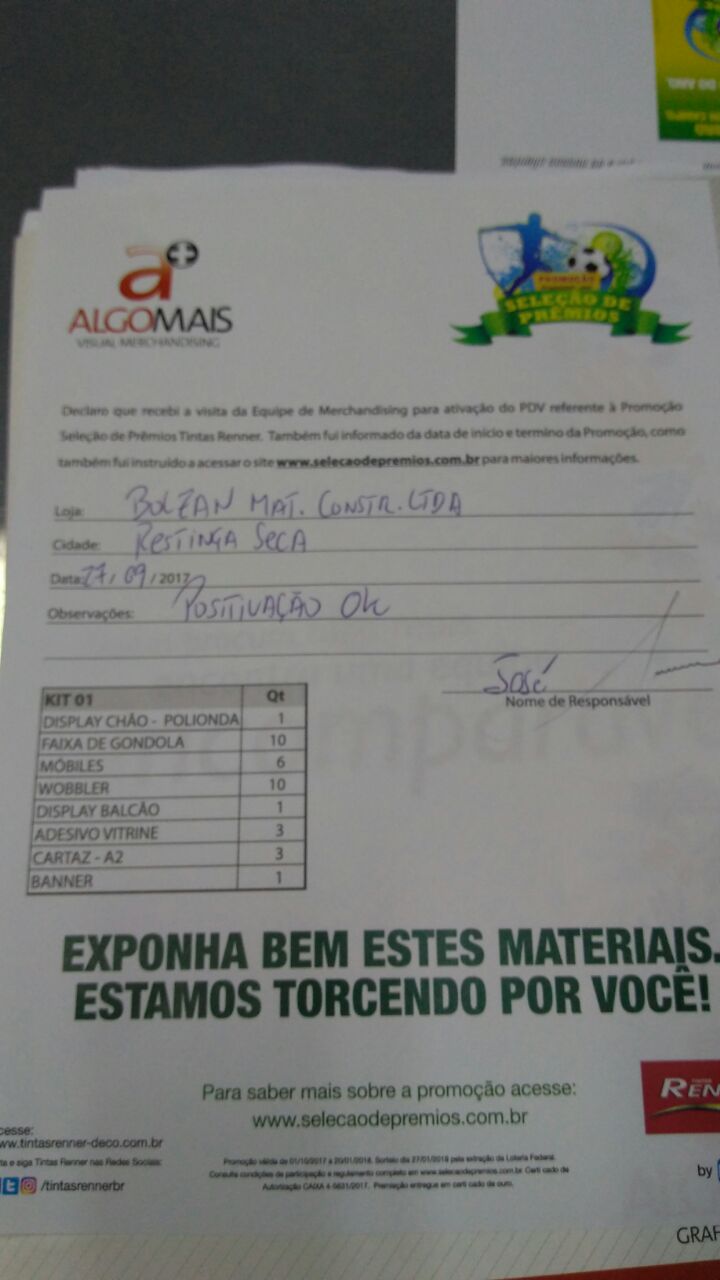 a+
ALGOMAIS
VISUAL MERCHANDISING
PROMOÇÃO
SELEÇÃO DE
PRÊMIOS
Declaro que recebi a visita da Equipe de Merchandising para ativação do PDV referente à Promoção
Seleção de Prêmios Tintas Renner. Também fui informado da data de início e termino da Promoção, como
também fui instruído a acessar o site www.selecaodepremios.com.br para maiores informações.
Loja: BOLZAN MAT. CONSTR. LTDA
Cidade: RESTINGA SECA
Data: 27/09/2017
Observações: POSITIVAÇÃO OK
José
Nome de Responsável
KIT 01 Qt
DISPLAY CHÃO - POLIONDA 1
FAIXA DE GONDOLA 10
MÓBILES 6
WOBBLER 10
DISPLAY BALCÃO 1
ADESIVO VITRINE 3
CARTAZ - A2 3
BANNER 1
EXPONHA BEM ESTES MATERIAIS.
ESTAMOS TORCENDO POR VOCÊ!
Para saber mais sobre a promoção acesse:
www.selecaodepremios.com.br
REN
cesse:
ww.tintasrenner-deco.com.br
ta e siga Tintas Renner nas Redes Sociais:
/tintasrennerbr
Promoção válida de 01/10/2017 a 20/01/2018. Sorteio dia 27/01/2018 pela extração da Loteria Federal.
Consulte condições de participação e regulamento completo em www.selecaodepremios.com.br Certi cado de
Autorização CAIXA 4-5631/2017. Premiação entregue em certi cado de ouro.
by
GRAF